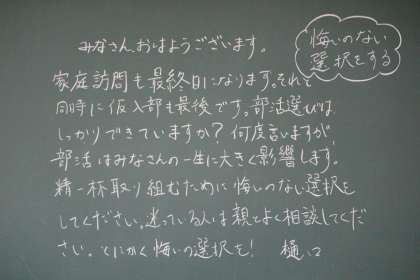 みなさん、おはようございます。
悔いのない
選択をする
家庭訪問も最終日になります。それと
同時に仮入部も最後です。部活選びは
しっかりできていますか？何度言いますが
部活はみなさんの一生に大きく影響します。
精一杯取り組むために悔いのない選択を
してください。迷っている人は親とよく相談してくだ
さい。とにかく悔いの選択を！ 樋口